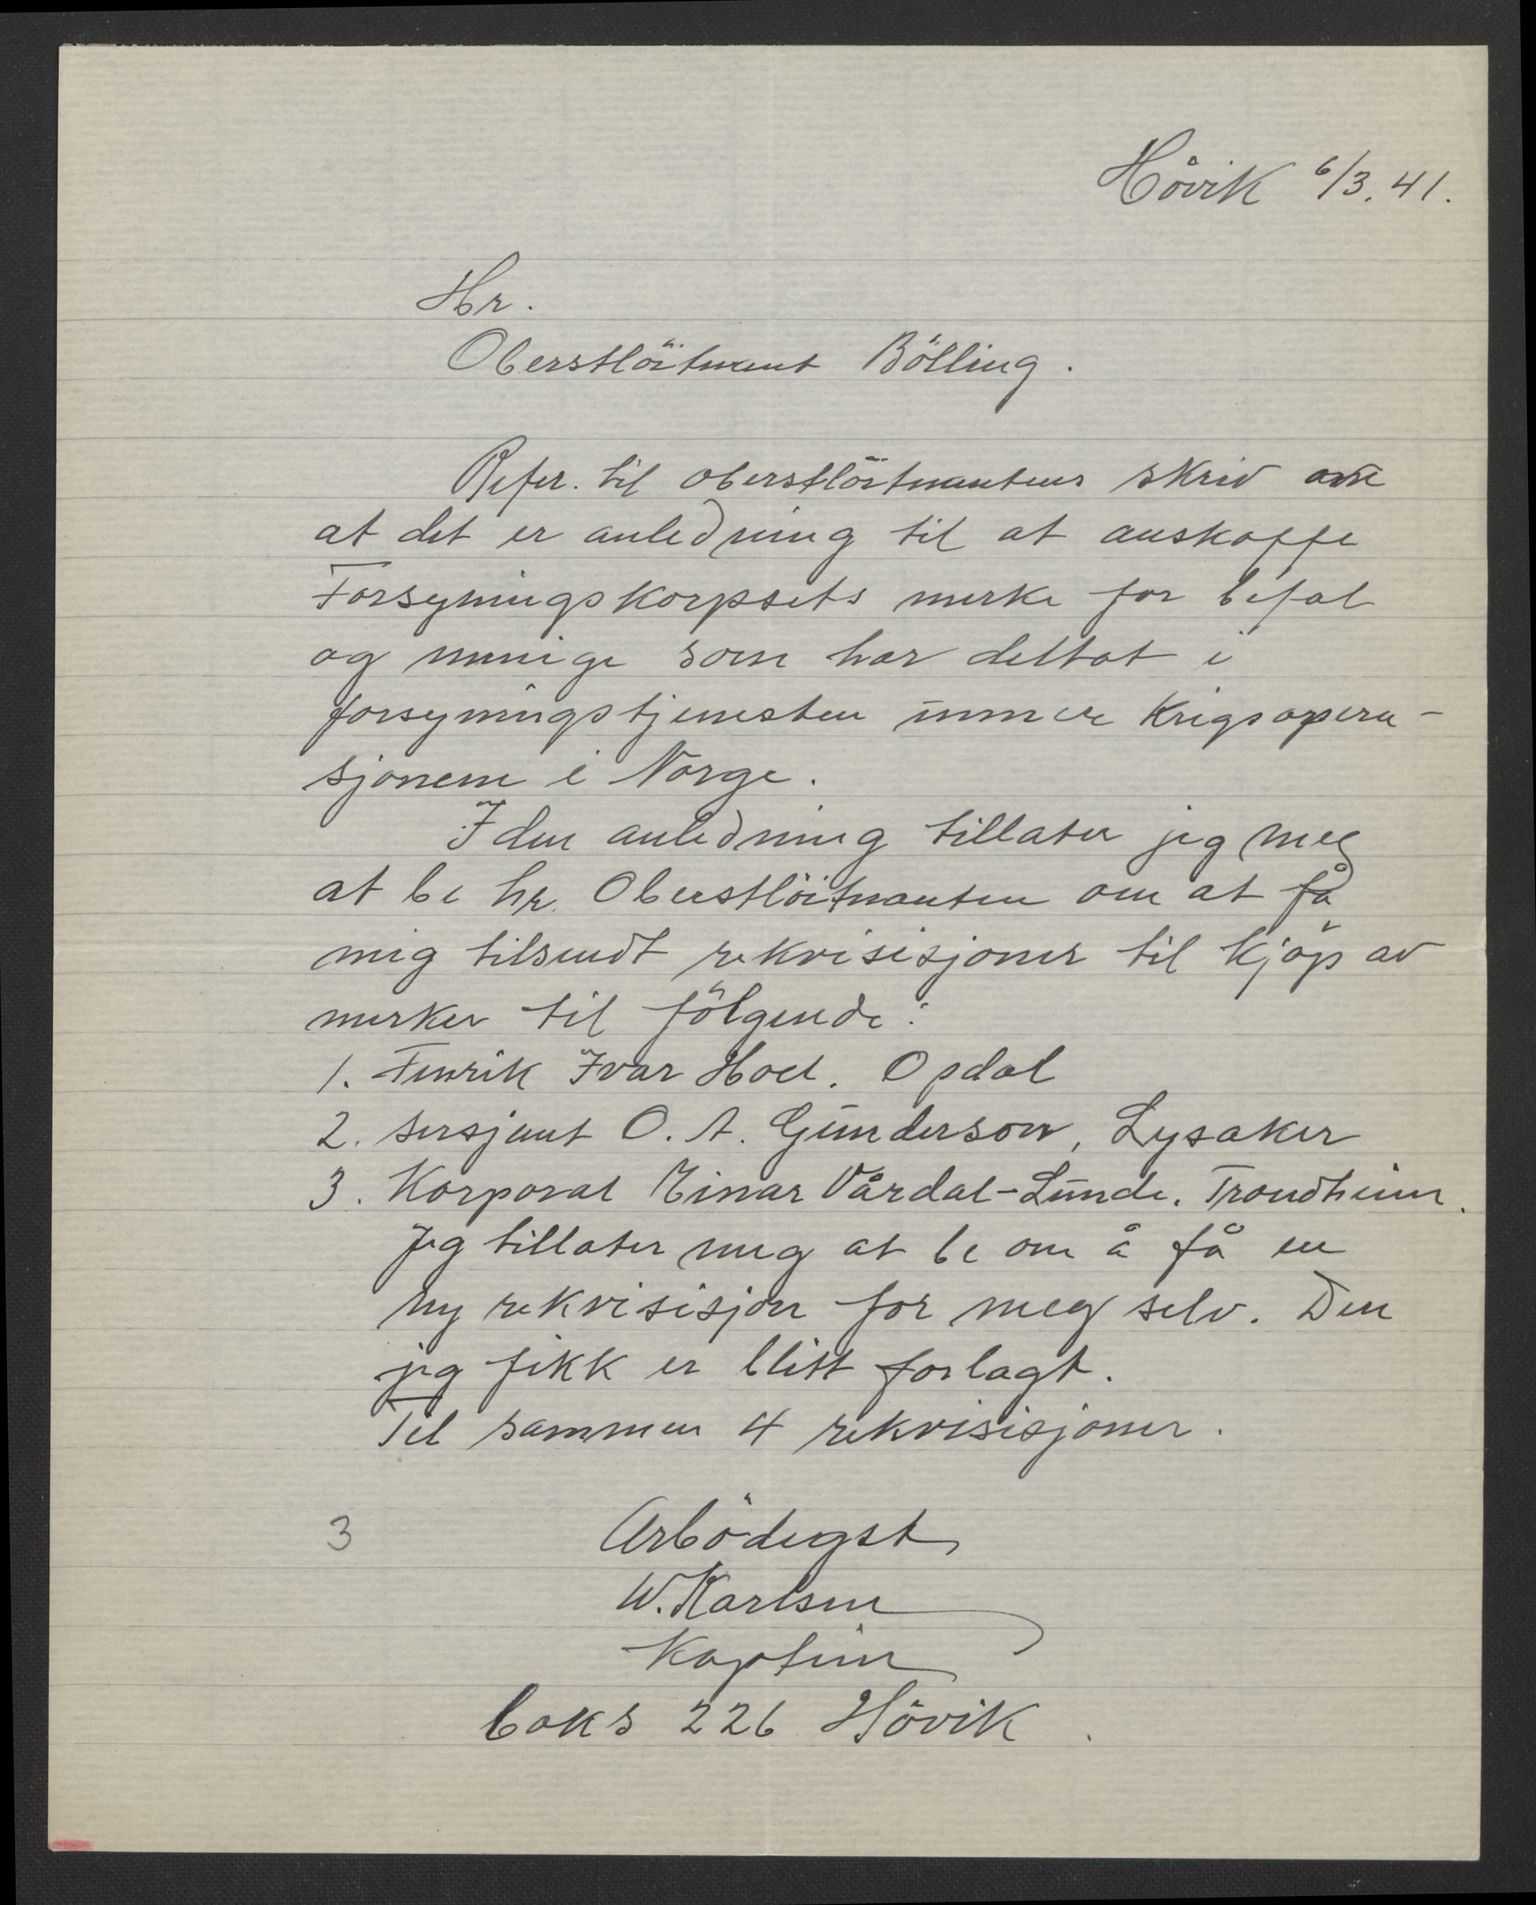 Hövik 6/3. 41.
Hr.
Oberstlöitnant Bölling.
Refer. til oberstlöitnantens skriv om
at det er anledning til at anskaffe
Forsyningskorpsets merke for befal
og menige som har deltat i
forsyningstjenesten under Krigsopera-
sjonene i Norge.
I den anledning tillater jeg meg
at be hr. Oberstlöitnanten om at få
mig tilsendt rekvisisjoner til kjöp av
merker til fölgende:
1. Fenrik Ivar Hoel. Opdal
2. Sersjant O. A. Gunderson, Lysaker
3. Korporal Einar Vårdal-Lunde. Trondheim.
Jeg tillater meg at be om å få en
ny rekvisisjon for meg selv. Den
jeg fikk er blitt forlagt.
Til sammen 4 rekvisisjoner.
3
Arbödigst
W. Karlsen
Kaptein
boks 226 Hövik.